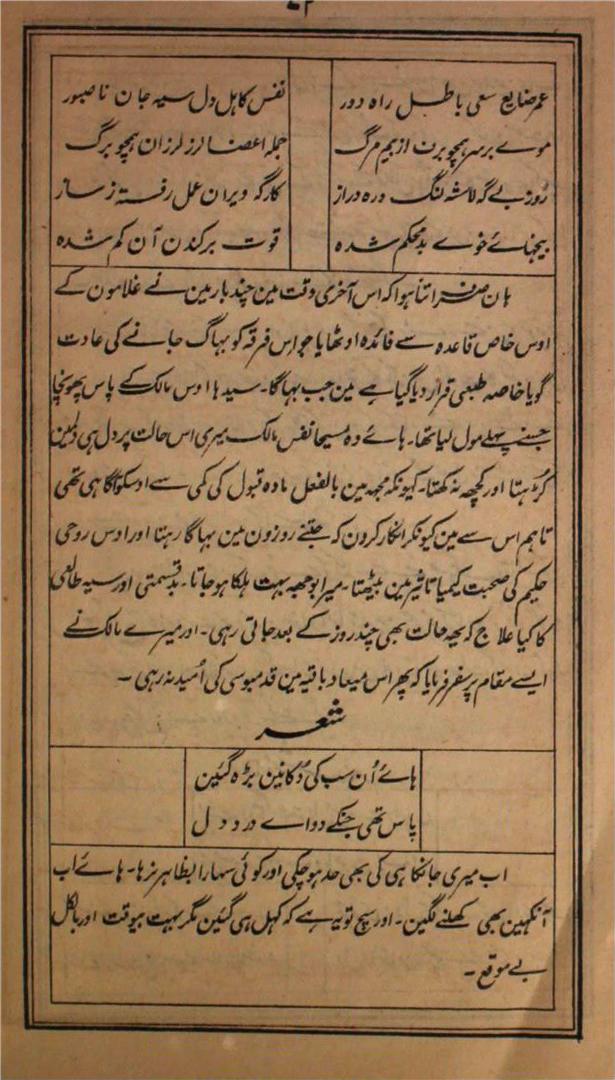 عمر ضایع سعی باطل راہ دور نفس کاہل دل سیہ جان ناصبور
موے برسر ہمچو برف از بیم مرگ جملہ اعضا لرز لرزان ہمچو برگ
روز بے گہ لاشہ لنگ و رہ دراز کارگہ ویران عمل رفتہ ز ساز
بیخہاے خوے بد محکم شدہ قوت برکندن آن کم شدہ
ہان صرف اتنا ہوا کہ اس آخری وقت مین چند بار مین نے غلامون کے
اوس خاص قاعدہ سے فائدہ اوٹھایا جو اس فرقہ کو بہاگ جانے کی عادت
گویا خاصہ طبعی قرار دیا گیا ہے مین جب بہاگا۔ سیدہا اوس مالک کے پاس پہونچا
جسنے پہلے مول لیا تھا۔ ہاے وہ مسیحا نفس مالک میری اس حالت پر دل ہی دلمین
کڑہتا اور کچھہ نہ کہتا۔ کیونکہ مجہہ مین بالفعل مادہ قبول کی کمی سے اوسکو آگاہی تھی
تاہم اس سے مین کیونکر انکار کرون کہ جتنے روزون مین بہاگا رہتا اور اوس روحی
حکیم کی صحبت کیمیا تاثیر مین بیٹھتا۔ میرا بوجھہ بہت ہلکا ہو جاتا۔ بدقسمتی اور سیہ طالعی
کا کیا علاج کہ یہہ حالت بھی چند روز کے بعد جاتی رہی۔ اور میرے مالک نے
ایسے مقام پر سفر فرمایا کہ پھر اس میعاد باقیہ مین قدمبوسی کی اُمید نہ رہی ۔
شعر
ہاے اُن سب کی دُکانین بڑہ گئین
پاس تھی جنکے دواے درد دل
اب میری جانکاہی کی بھی حد ہو چکی اور کوئی سہارا بظاہر نرہا۔ ہاے اب
آنکہین بھی کھلنے لگین۔ اور سچ تو یہ ہے کہ کہل ہی گئین مگر بہت بیوقت اور بالکل
بے موقع ۔